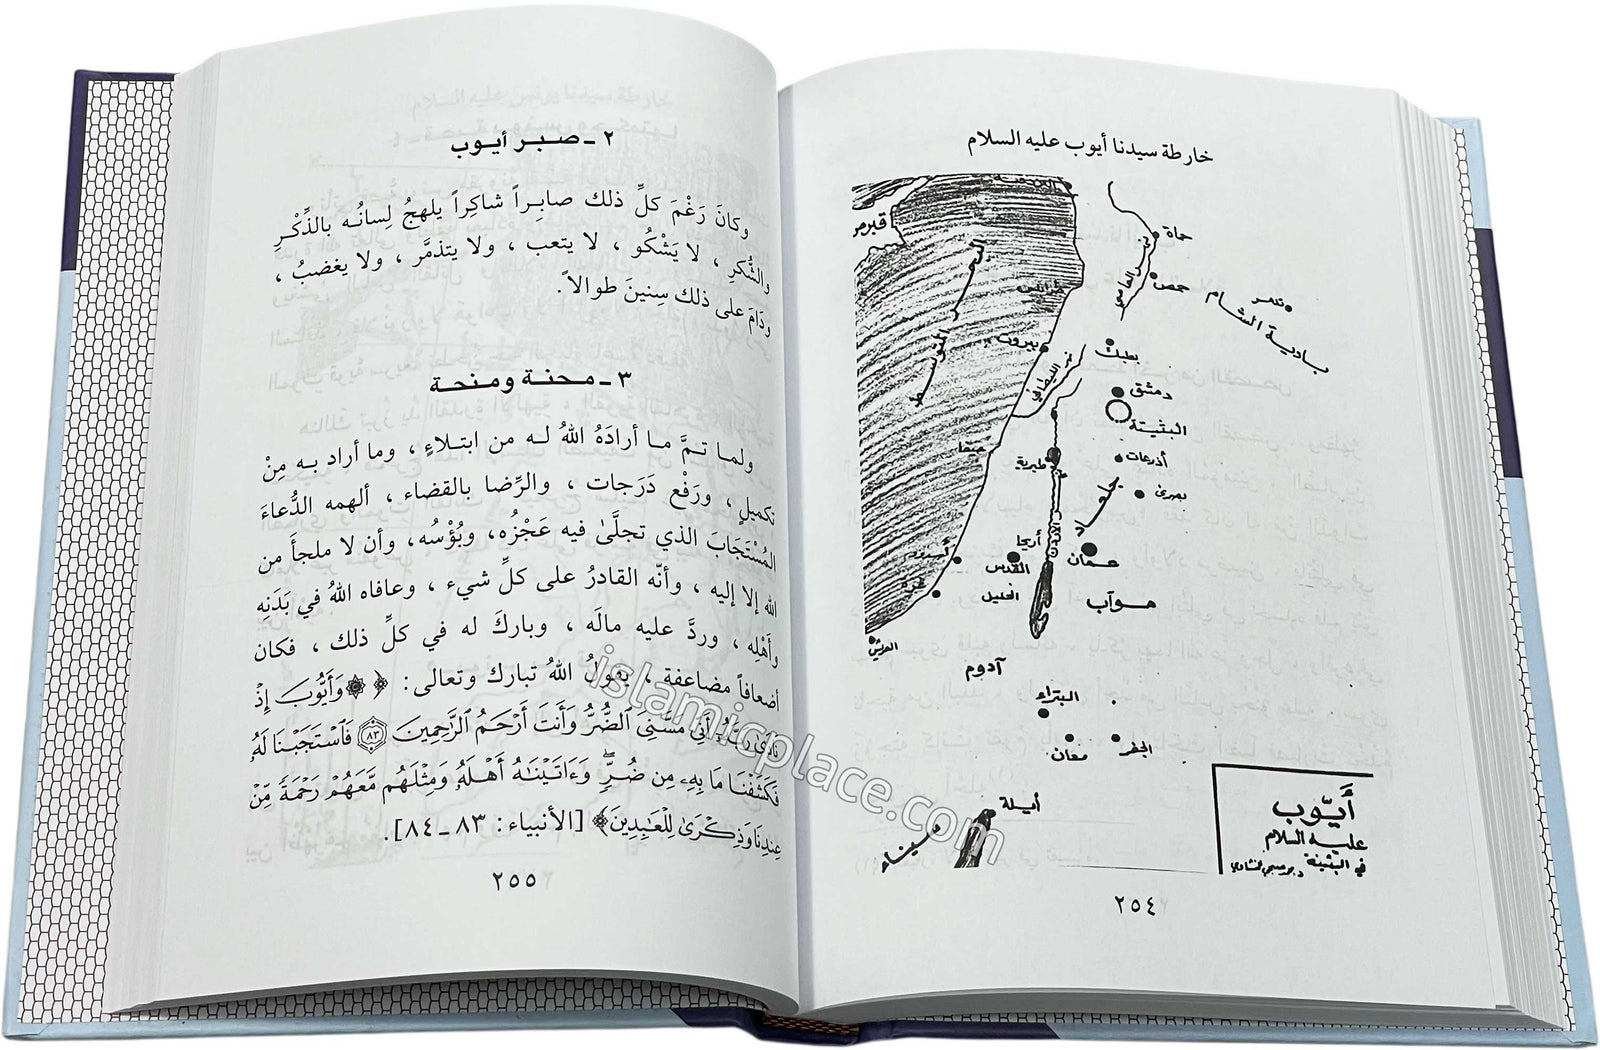 خارطة سيدنا أيوب عليه السلام
قبرص
البحر المتوسط
حماة
نهر العاصي
حمص
تدمر
بادية الشام
طرابلس
بيروت
نهر الليطاني
بعلبك
دمشق
البثينة
أذرعات
بصرى
طبرية
جلعاد
نهر الأردن
أريحا
القدس
عمان
الخليل
موآب
غزة
العريش
آدوم
البتراء
معان
الجفر
أيلة
سيناء
أيّوب
عليه السلام
في البثينة
٢٥٤
٢ ـ صبر أيوب
وكانَ رَغْمَ كلِّ ذلك صابِراً شاكِراً يلهجُ لِسانُه بالذِّكْرِ
والشُّكرِ ، لا يَشْكُو ، لا يتعب ، ولا يتذمَّر ، ولا يغضبُ ،
ودَامَ على ذلك سِنينَ طوالاً .
٣ ـ محنة ومنحة
ولما تمَّ ما أرادَهُ اللهُ له من ابتلاءٍ ، وما أراد به مِنْ
تكميلٍ ، ورَفْع دَرَجات ، والرِّضا بالقضاء ، ألهمه الدُّعاءَ
المُسْتَجَابَ الذي تجلَّىٰ فيه عَجْزُه، وبُؤْسُه، وأن لا ملجأَ من
الله إلا إليه ، وأنّه القادرُ على كلِّ شيء ، وعافاه اللهُ في بَدَنِه
وأَهْلِه ، وردَّ عليه مالَه ، وباركَ له في كلِّ ذلك ، فكان
أضعافاً مضاعفة ، يقولُ اللهُ تبارك وتعالى : ﴿ وَأَيُّوبَ إِذْ
نَادَىٰ رَبَّهُۥٓ أَنِّي مَسَّنِيَ ٱلضُّرُّ وَأَنتَ أَرْحَمُ ٱلرَّٰحِمِينَ ٨٣ فَٱسْتَجَبْنَا لَهُۥ
فَكَشَفْنَا مَا بِهِۦ مِن ضُرٍّۖ وَءَاتَيْنَٰهُ أَهْلَهُۥ وَمِثْلَهُم مَّعَهُمْ رَحْمَةً مِّنْ
عِندِنَا وَذِكْرَىٰ لِلْعَٰبِدِينَ﴾ [الأنبياء : ٨٣ ـ ٨٤] .
٢٥٥
islamicplace.com